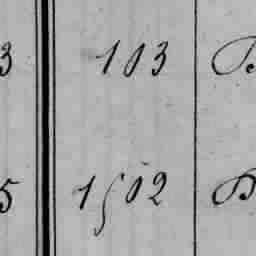 3 103 В
5 1502 В